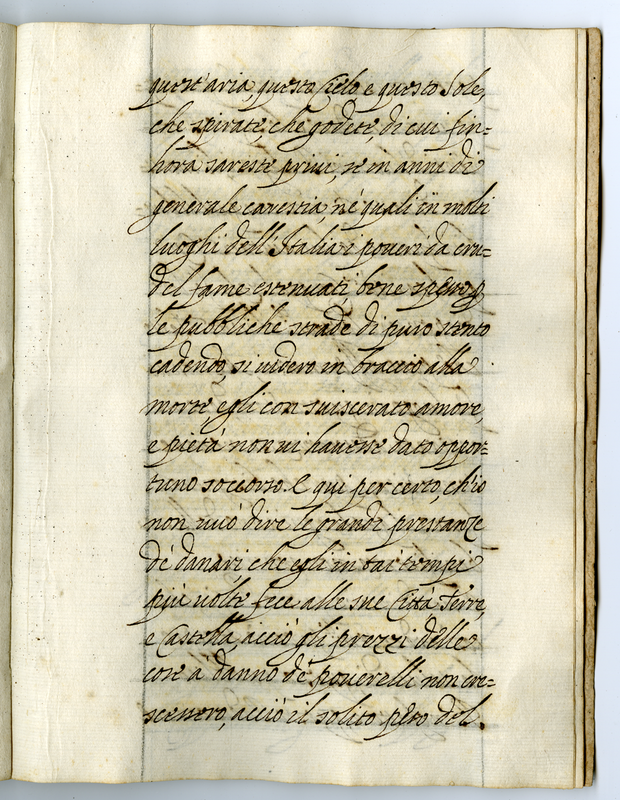 quest'aria, questo Cielo e questo Sole,
che spirate, che godete, di cui fin=
hora sareste privi, se in anni di
generale carestia, né quali in molti
luoghi dell'Italia i poveri da cru=
del fame estenuati, bene spesso p
le pubbliche strade di puro stento
cadendo, si videro in braccio alla
morte egli con suiscerato amore,
e pietà non vi havesse dato oppor=
tuno soccorso. E qui per certo, ch'io
non vuó dire le grandi prestanze
dé danari che egli in tai tempi
più volte fece alle sue Città Terre,
e Castella, acciò gli prezzi delle
cose a danno dé poverelli non cre=
scessero, acciò il solito peso del